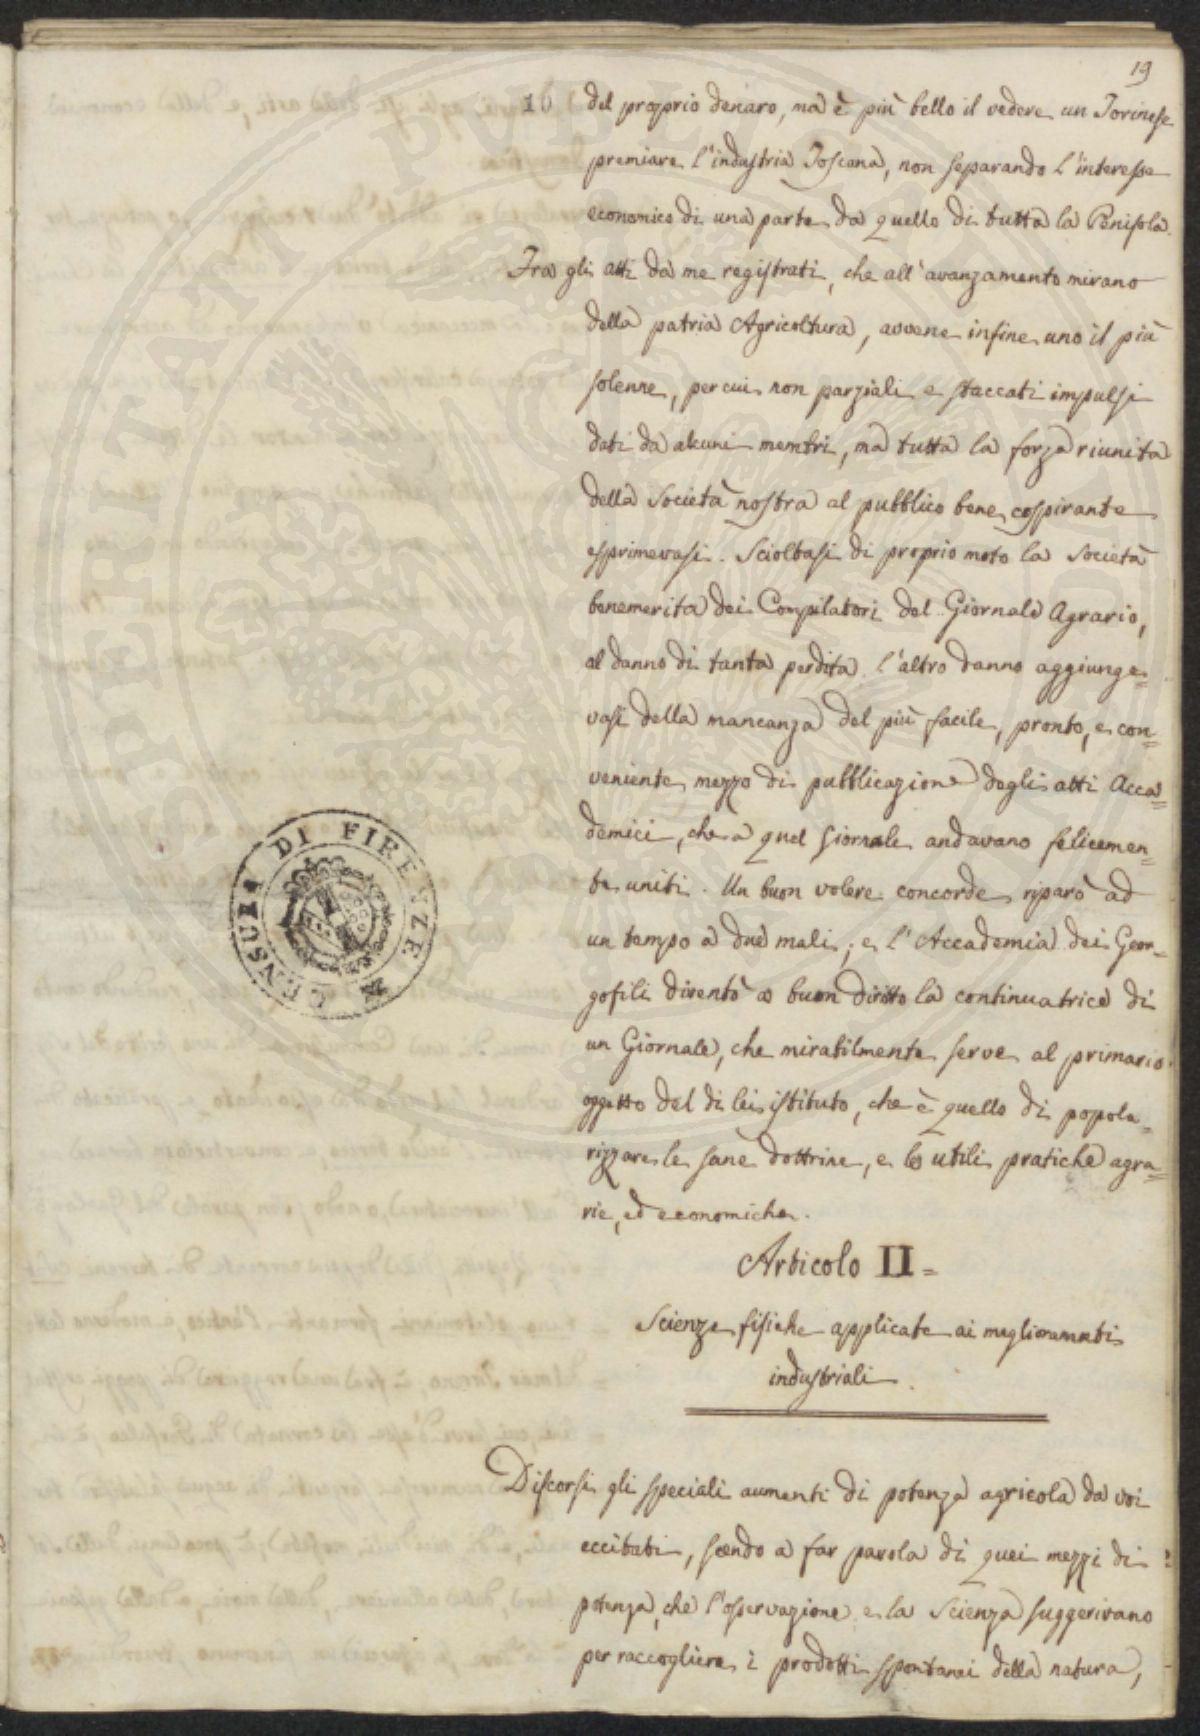 19
10 del proprio denaro, ma è più bello il vedere un Torinese
premiare l'industria Toscana, non separando l'interesse
economico di una parte da quello di tutta la Penisola.
Tra gli atti da me registrati, che all'avanzamento mirano
della patria Agricoltura, avvene infine uno il più
solenne, per cui non parziali e staccati impulsi
dati da alcuni membri, ma tutta la forza riunita
della Società nostra al pubblico bene cospirante
esprimevasi. Scioltasi di proprio moto la Società
benemerita dei Compilatori del Giornale Agrario,
al danno di tanta perdita l'altro danno aggiunge=
vasi della mancanza del più facile, pronto, e con=
veniente mezzo di pubblicazione degli atti Acca=
demici, che a quel Giornale andavano felicemen=
te uniti. Un buon volere concorde riparò ad
un tempo a due mali; e l'Accademia dei Geor=
gofili diventò a buon diritto la continuatrice di
un Giornale, che mirabilmente serve al primario
oggetto del di lei istituto, che è quello di popola=
rizzare le sane dottrine, e le utili pratiche agra=
rie, ed economiche.
Articolo II =
Scienze fisiche applicate ai miglioramenti
industriali.
Discorsi gli speciali aumenti di potenza agricola da voi
eccitati, scendo a far parola di quei mezzi di
potenza, che l'osservazione e la Scienza suggerivano
per raccogliere i prodotti spontanei della natura,
CENSURA DI FIRENZE
PUBLICAE